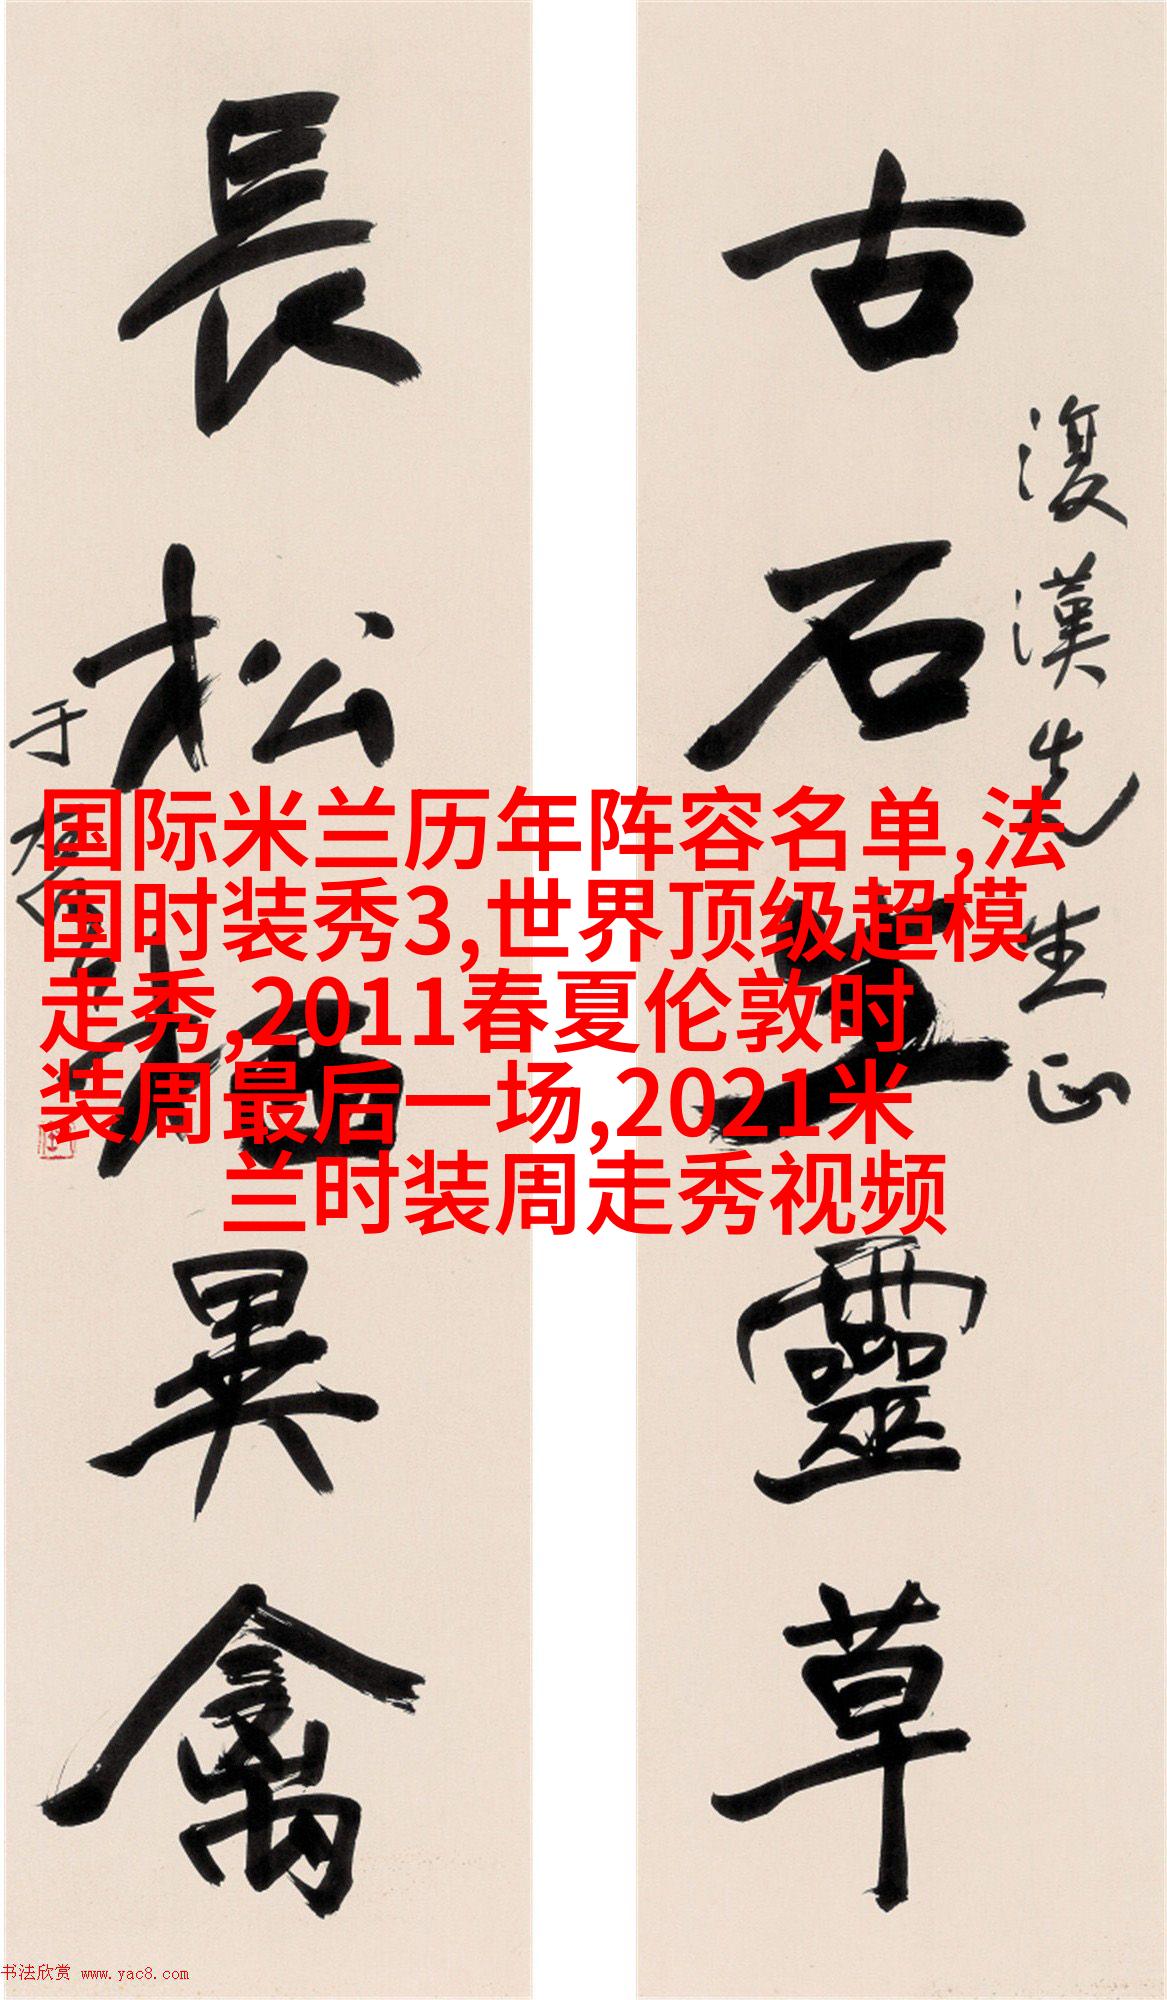 古石生靈草
復漢先生正
長松栖異禽
于右任
国际米兰历年阵容名单,法
国时装秀3,世界顶级超模
走秀,2011春夏伦敦时
装周最后一场,2021米
兰时装周走秀视频
书法欣赏 www.yac8.com